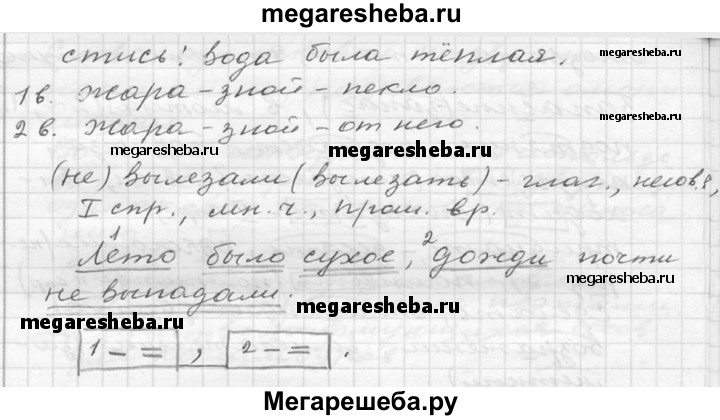 megaresheba.ru
стись! вода была тёплая.
megaresheba.ru
1 в. Жара – зной – пекло.
2 в. Жара – зной – от него.
megaresheba.ru
megaresheba.ru
megaresheba.ru
(не) вылезали (вылезать) – глаг., несов.в.,
I спр., мн. ч., прош. вр.
1 Лето было сухое, 2 дожди почти
megaresheba.ru
не выпадали.
megaresheba.ru
megaresheba.ru
1 – = , 2 – = .
Мегарешеба.ру